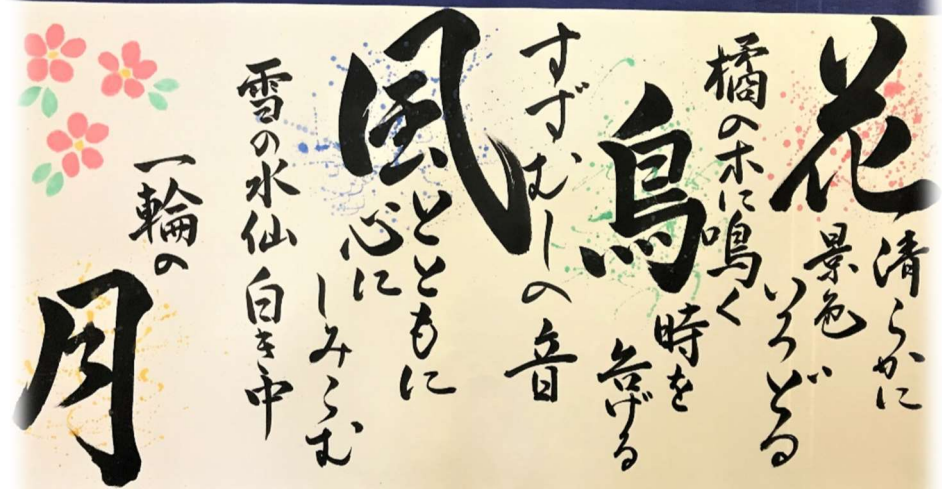 花清らかに
景色
いろどる
橘の木に鳴く
鳥時を
告げる
すずむしの音
風とともに
心に
しみこむ
雪の水仙白き中
一輪の
月